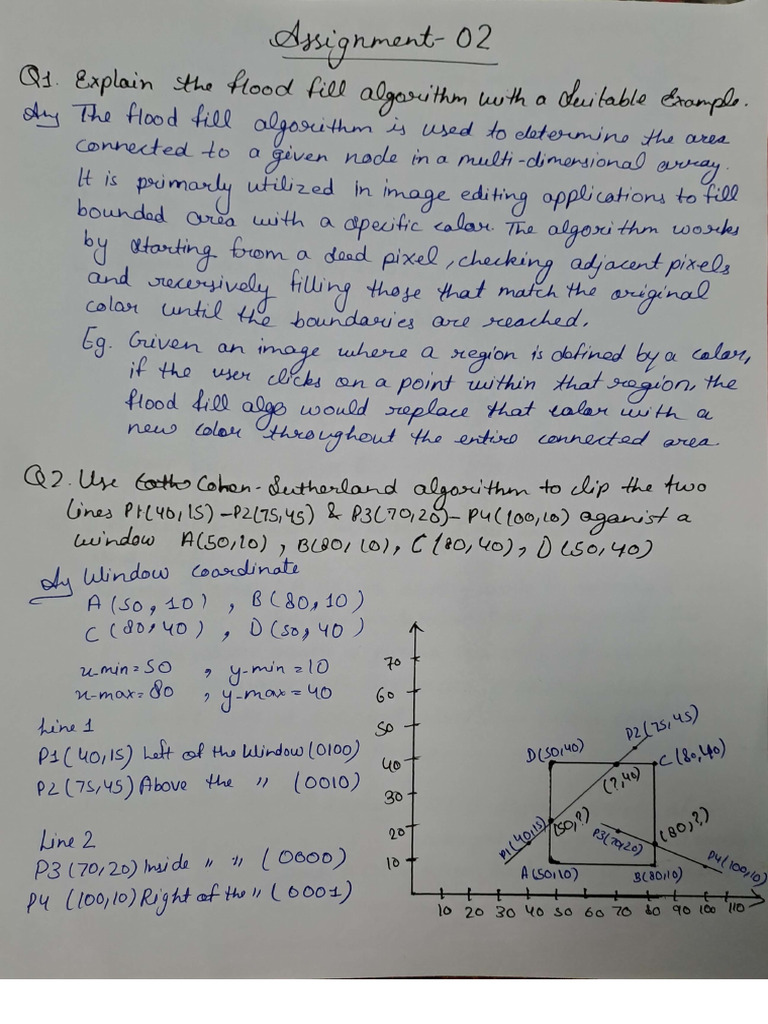 Assignment-02
Q1. Explain the flood fill algorithm with a Suitable Example.
Ans The flood fill algorithm is used to determine the area
connected to a given node in a multi-dimensional array.
It is primarly utilized in image editing applications to fill
bounded area with a specific color. The algorithm works
by starting from a seed pixel, checking adjacent pixels
and recersively filling those that match the original
color until the boundaries are reached.
Eg. Given an image where a region is defined by a color,
if the user clicks on a point within that region, the
flood fill algo would replace that color with a
new color throughout the entire connected area.
Q2. Use Cohen-Sutherland algorithm to clip the two
lines P1(40,15)-P2(75,45) & P3(70,20)-P4(100,10) aganist a
window A(50,10), B(80,10), C(80,40), D(50,40)
Ans Window coordinate
A(50,10), B(80,10)
C(80,40), D(50,40)
x-min=50, y-min=10
x-max=80, y-max=40
Line 1
P1(40,15) Left of the Window (0100)
P2(75,45) Above the " (0010)
Line 2
P3(70,20) Inside " " (0000)
P4 (100,10) Right of the " (0001)
70
60
50
40
30
20
10
P2(75,45)
D(50,40)
C(80,40)
(?,40)
P1(40,15)
(50,?)
P3(70,20)
(80,?)
P4(100,10)
A(50,10)
B(80,10)
10 20 30 40 50 60 70 80 90 100 110